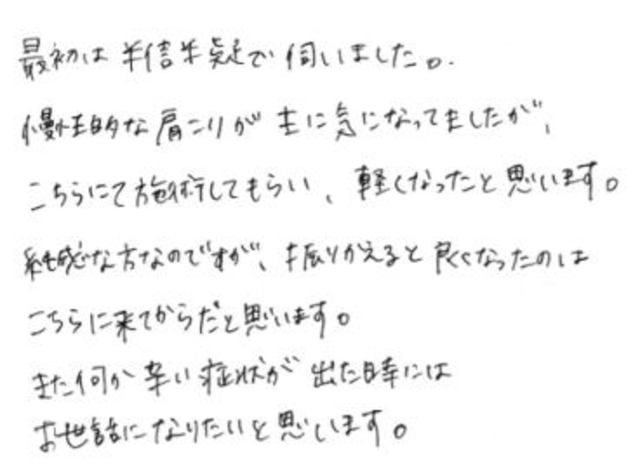 最初は半信半疑で伺いました。
慢性的な肩こりが主に気になってましたが、
こちらにて施術してもらい、軽くなったと思います。
鈍感な方なのですが、振りかえると良くなったのは
こちらに来てからだと思います。
また何か辛い症状が出た時には
お世話になりたいと思います。